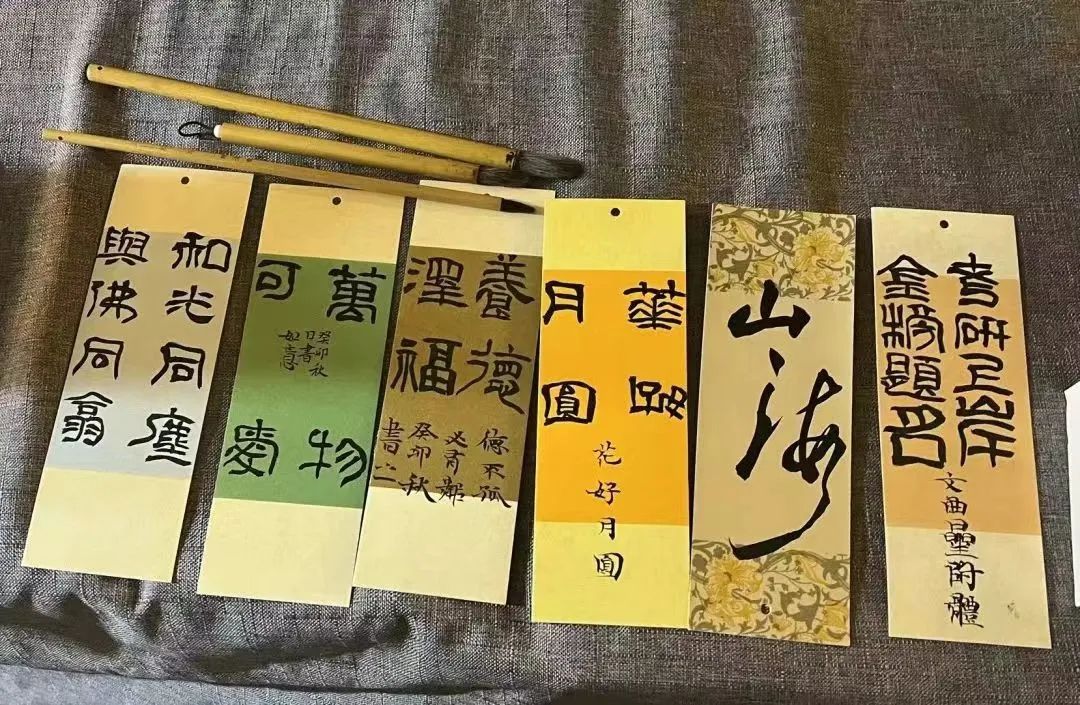 和光同塵
與佛同翕
萬物
可愛
癸卯秋
日書
如意
養德
澤福
德不孤
必有鄰
癸卯秋
書之
華好
月圓
花好月圓
山海
考研上岸
金榜題名
文曲星附體